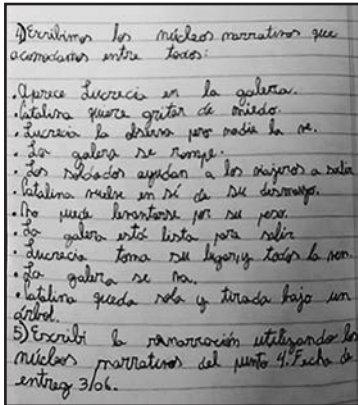 4) Escribimos los núcleos narrativos que
acomodamos entre todos:
. Aprece Lucrecia en la galera.
. Catalina quiere gritar de miedo.
. Lucrecia la observa pero nadie la ve.
. La galera se rompe.
. Los soldados ayudan a los viajeros a salir
. Catalina vuelve en sí de su desmayo.
. No puede levantarse por su peso.
. La galera está lista para salir
. Lucrecia toma su lugar y todos la ven.
. La galera se va.
. Catalina queda sola y tirada bajo un
árbol.
5) Escribí la renarración utilizando los
núcleos narrativos del punto 4. Fecha de
entreg 3/06.